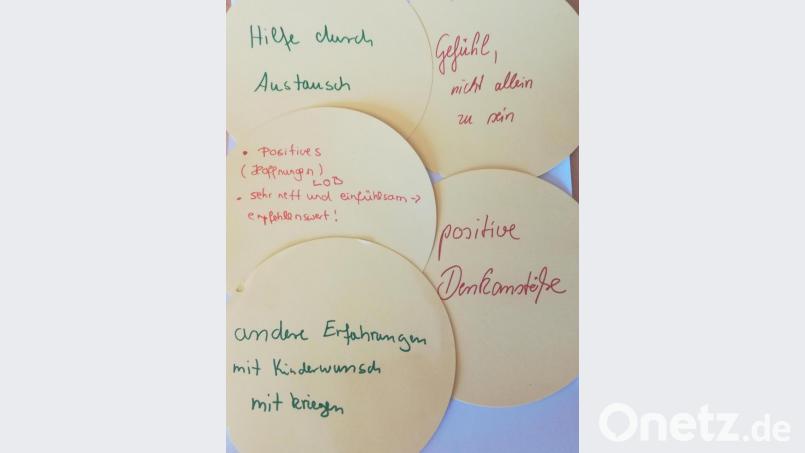 Hilfe durch
Austausch
Gefühl,
nicht allein
zu sein
• Positives
(Hoffnungen)
LOB
• sehr nett und einfühlsam →
empfehlenswert!
positive
Denkanstöße
andere Erfahrungen
mit Kinderwunsch
mit kriegen
Onetz.de